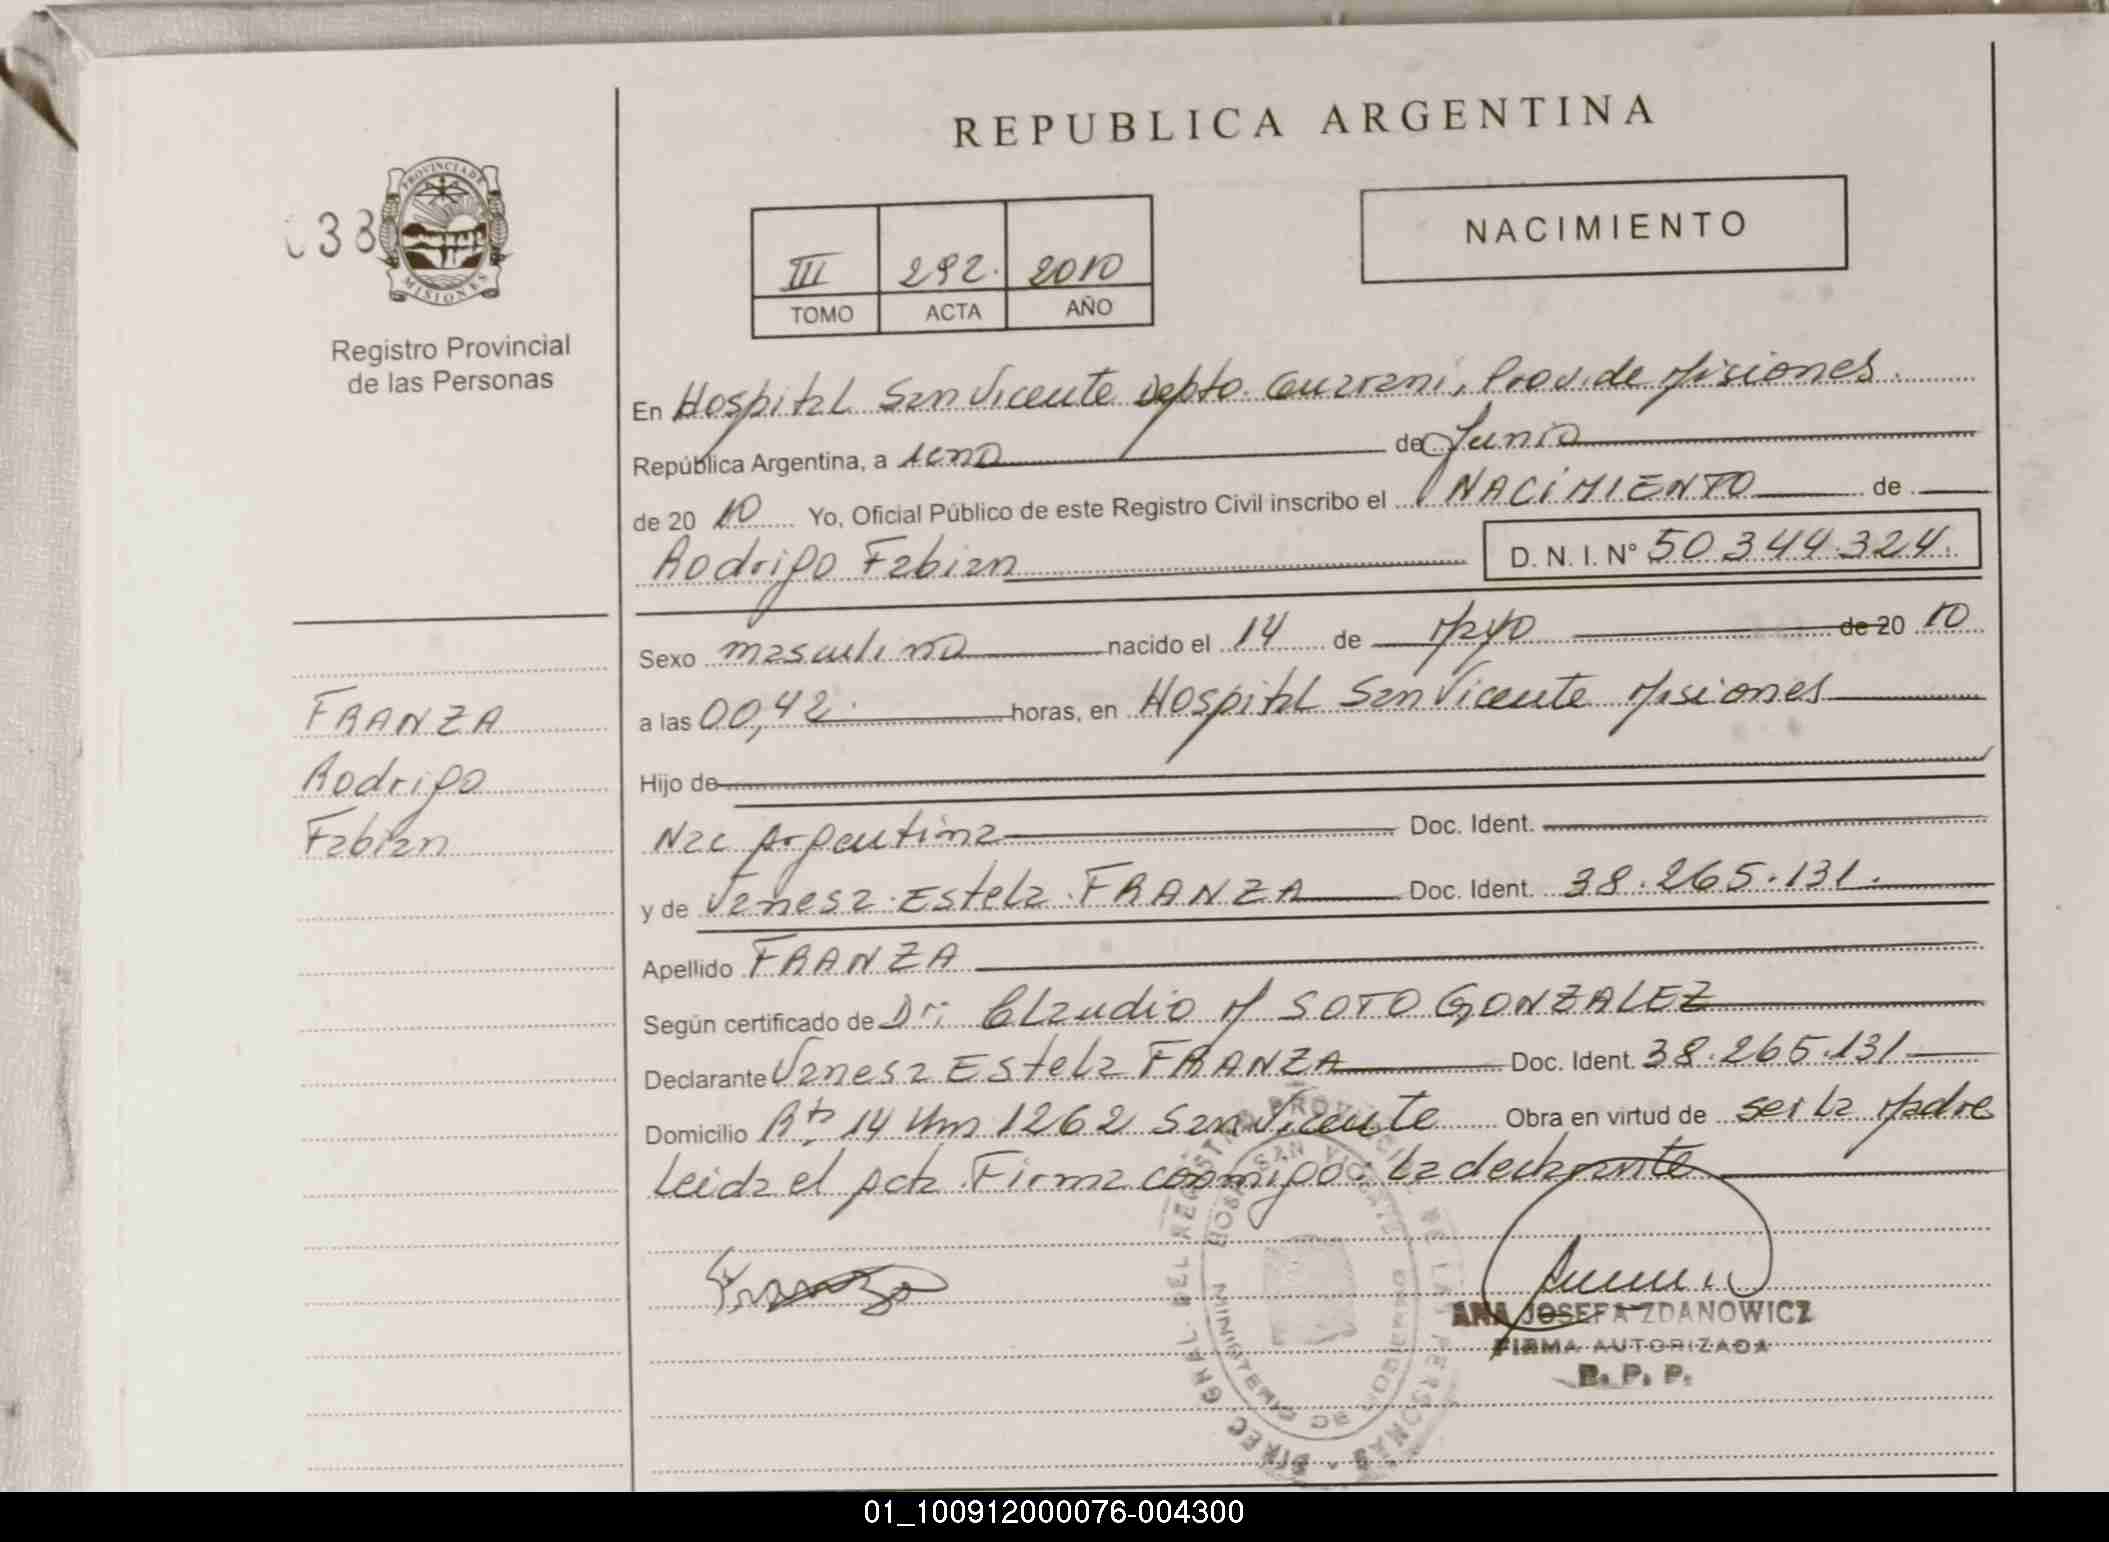 REPUBLICA ARGENTINA
038
PROVINCIA DE
MISIONES
Registro Provincial
de las Personas
III 292. 2010
TOMO ACTA AÑO
NACIMIENTO
En Hospital San Vicente Depto. Guarani, Prov. de Misiones.
República Argentina, a uno de Junio
de 20 10 Yo, Oficial Público de este Registro Civil inscribo el NACIMIENTO de
Rodrigo Fabian D. N. I. N° 50344324.
Sexo masculino nacido el 14 de Mayo de 20 10
FRANZA
Rodrigo
Fabian
a las 00,42 horas, en Hospital San Vicente Misiones
Hijo de
Nac Argentina Doc. Ident.
y de Vanesa Estela FRANZA Doc. Ident. 38.265.131.
Apellido FRANZA
Según certificado de Dr; Claudio M SOTO GONZALEZ
Declarante Vanesa Estela FRANZA Doc. Ident. 38.265.131
Domicilio Rta 14 Km 1262 San Vicente Obra en virtud de ser la Madre
Leida el Acta Firma conmigo: la declarante
Franza
ANA JOSEFA ZDANOWICZ
FIRMA AUTORIZADA
R. P. P.
DIREC GRAL. DEL REGISTRO PROVINCIAL DE LAS PERSONAS
HOSP. SAN VICENTE
MINISTERIO DE GOBIERNO
01_100912000076-004300